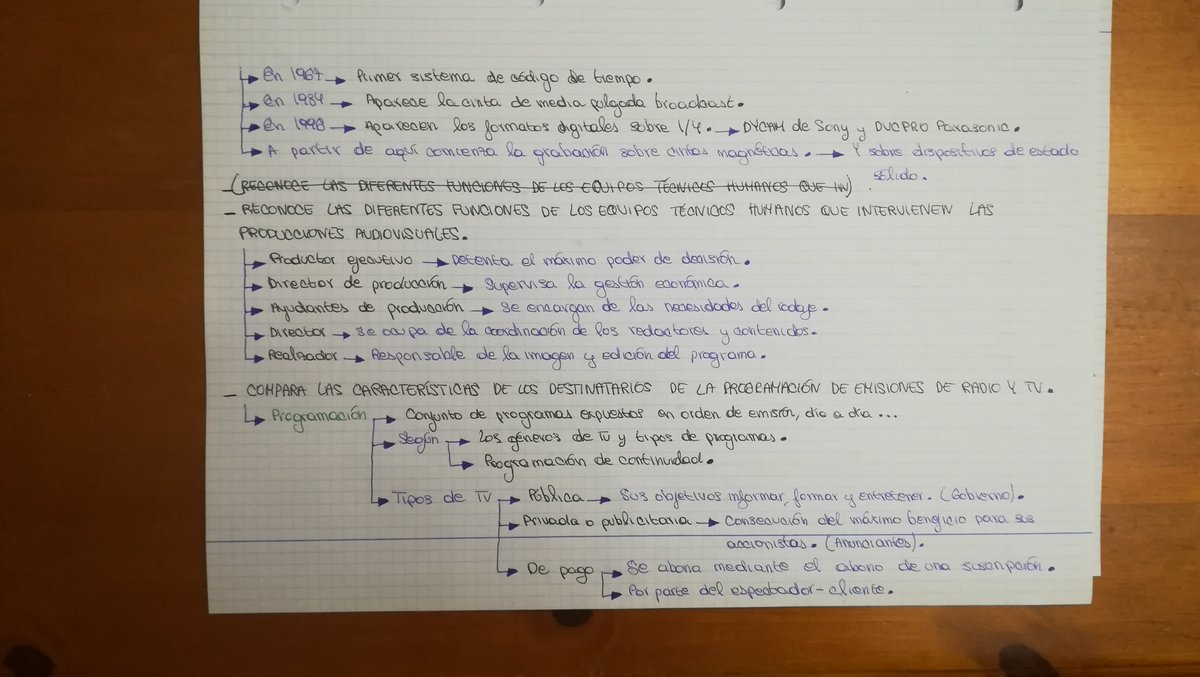 En 1967 → Primer sistema de código de tiempo.
En 1984 → Aparece la cinta de media pulgada broadcast.
En 1998 → Aparecen los formatos digitales sobre 1/4. → DVCAM de Sony y DVCPRO Panasonic.
A partir de aquí comienza la grabación sobre cintas magnéticas. → Y sobre dispositivos de estado
sólido.
- (RECONOCE LAS DIFERENTES FUNCIONES DE LOS EQUIPOS TÉCNICOS HUMANOS QUE IN)
- RECONOCE LAS DIFERENTES FUNCIONES DE LOS EQUIPOS TÉCNICOS HUMANOS QUE INTERVIENEN LAS
PRODUCCIONES AUDIOVISUALES.
Productor ejecutivo → Detenta el máximo poder de decisión.
Director de producción → Supervisa la gestión económica.
Ayudantes de producción → Se encargan de las necesidades del rodaje.
Director → Se ocupa de la coordinación de los redactores y contenidos.
Realizador → Responsable de la imagen y edición del programa.
- COMPARA LAS CARACTERÍSTICAS DE LOS DESTINATARIOS DE LA PROGRAMACIÓN DE EMISIONES DE RADIO Y TV.
Programación → Conjunto de programas expuestos en orden de emisión, día a día ...
Según → Los géneros de TV y tipos de programas.
Programación de continuidad.
Tipos de TV → Pública → Sus objetivos informar, formar y entretener. (Gobierno).
Privada o publicitaria → Consecución del máximo beneficio para sus
accionistas. (Anunciantes).
De pago → Se abona mediante el abono de una suscripción.
Por parte del espectador-cliente.